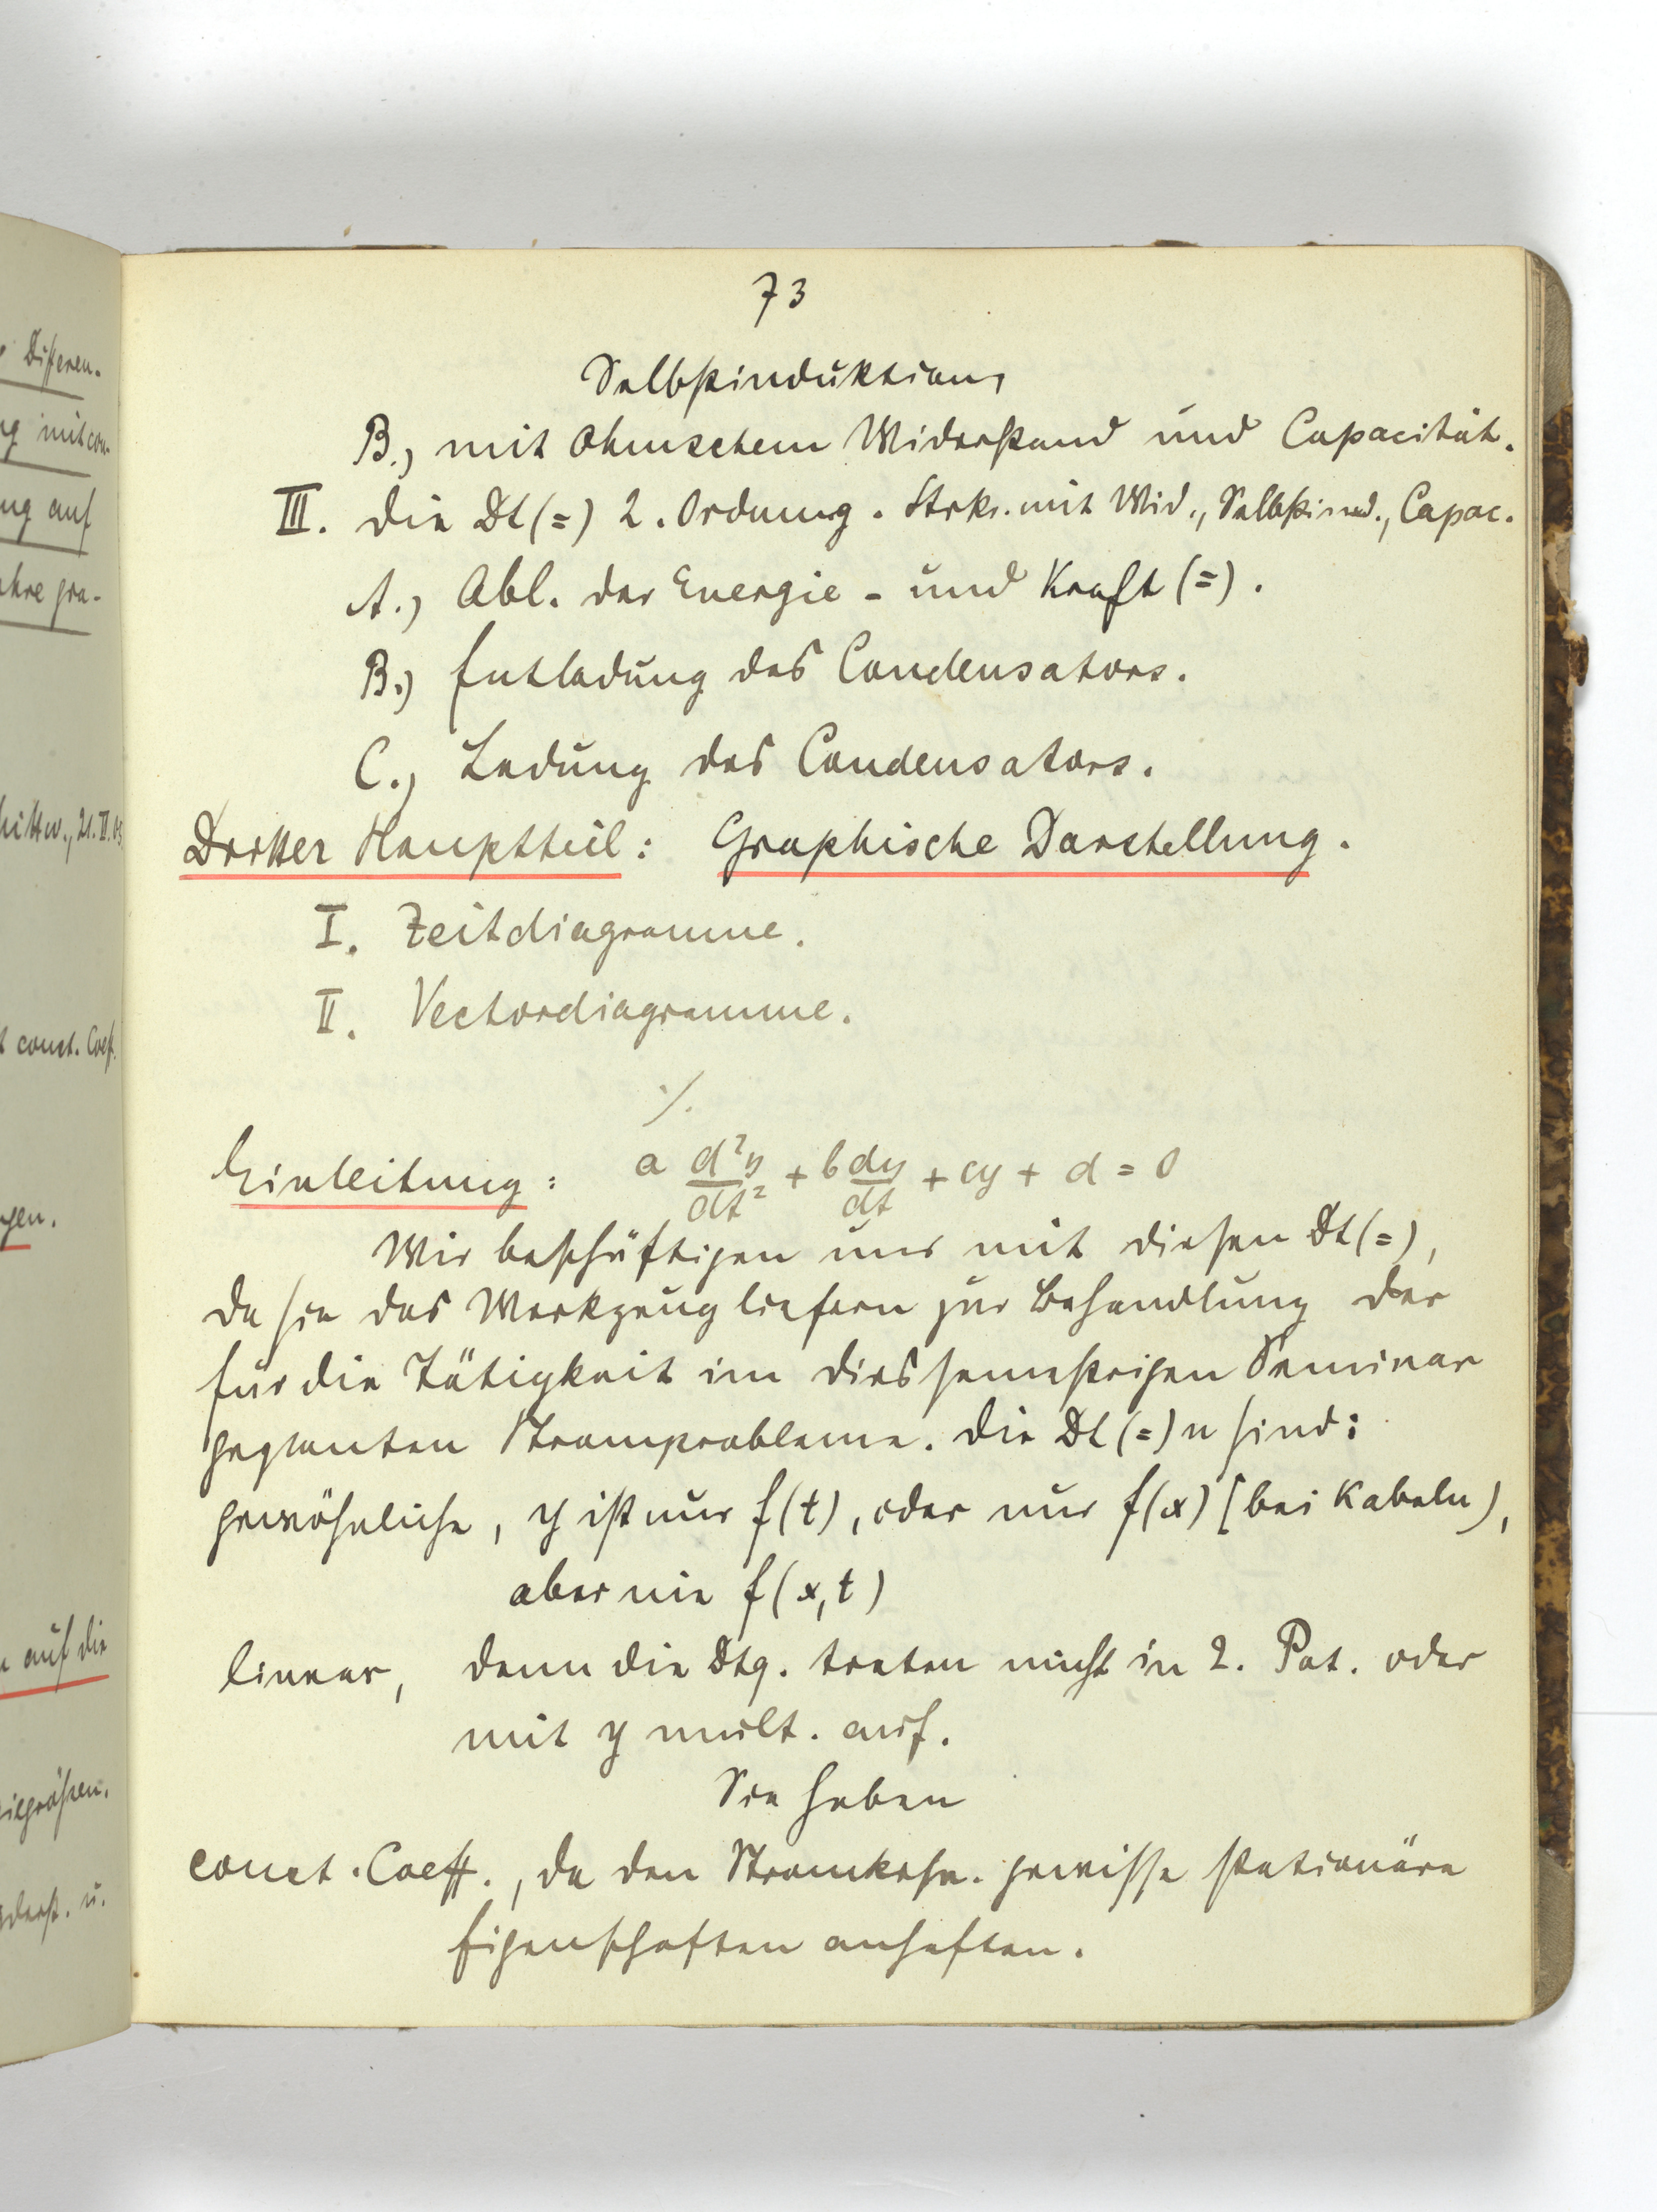 73
Selbstinduktion,
B.) mit Ohmschem Widerstand und Capacität.
III. Die Dt(=) 2. Ordnung. Strkr. mit Wid., Selbstind., Capac.
A.) Abl. der Energie- und Kraft(=).
B.) Entladung des Condensators.
C.) Ladung des Condensators.
Dritter Hauptteil: Graphische Darstellung.
I. Zeitdiagramme.
II. Vectordiagramme.
./.
Einleitung: a d²y/dt² + b dy/dt + cy + d = 0
Wir beschäftigen uns mit diesen Dt(=),
da sie das Werkzeug liefern zur Behandlung der
für die Tätigkeit im diessemstrigen Seminar
geplanten Stromprobleme. Die Dt(=)n sind:
gewöhnliche, y ist nur f(t), oder nur f(x) (bei Kabeln),
aber nie f(x,t)
linear, denn die Dtg. treten nicht in 2. Pot. oder
mit y mult. auf.
Sie haben
const. Coeff., da den Stromkrsn. gewisse stationäre
Eigenschaften anhaften.
Differen-
mit con-
ng auf
gra-
21.II.05
const. Coeff.
gen.
auf die
u.